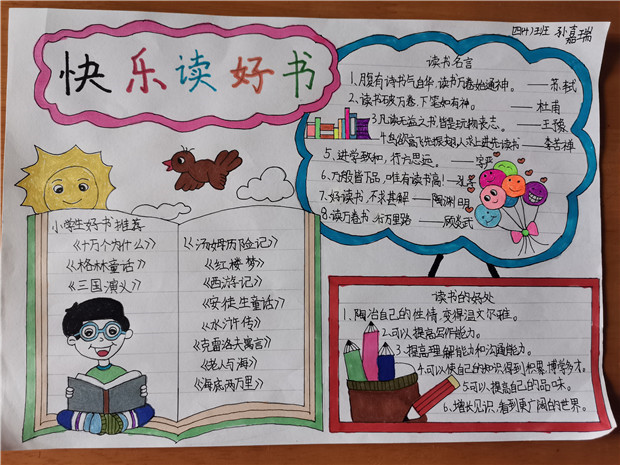 快乐读好书
四(4)班 孙嘉瑞
读书名言
1、腹有诗书气自华,读书万卷始通神。——苏轼
2、读书破万卷,下笔如有神。——杜甫
3、凡读无益之书,皆是玩物丧志。——王豫
4、鸟欲高飞先振翅,人求上进先读书——李苦禅
5、进学致和,行方思远。——
6、万般皆下品,唯有读书高!——
7、好读书,不求甚解——陶渊明
8、读万卷书,行万里路——顾炎武
小学生好书推荐
《十万个为什么》
《格林童话》
《三国演义》
《汤姆历险记》
《红楼梦》
《西游记》
《安徒生童话》
《水浒传》
《克雷洛夫寓言》
《老人与海》
《海底两万里》
读书的好处
1、陶冶自己的性情,变得温文尔雅。
2、可以提高写作能力。
3、提高理解能力和沟通能力。
4、可以使自己的知识得到积累,博学多才。
5、可以提高自己的品味。
6、增长见识,看到更广阔的世界。